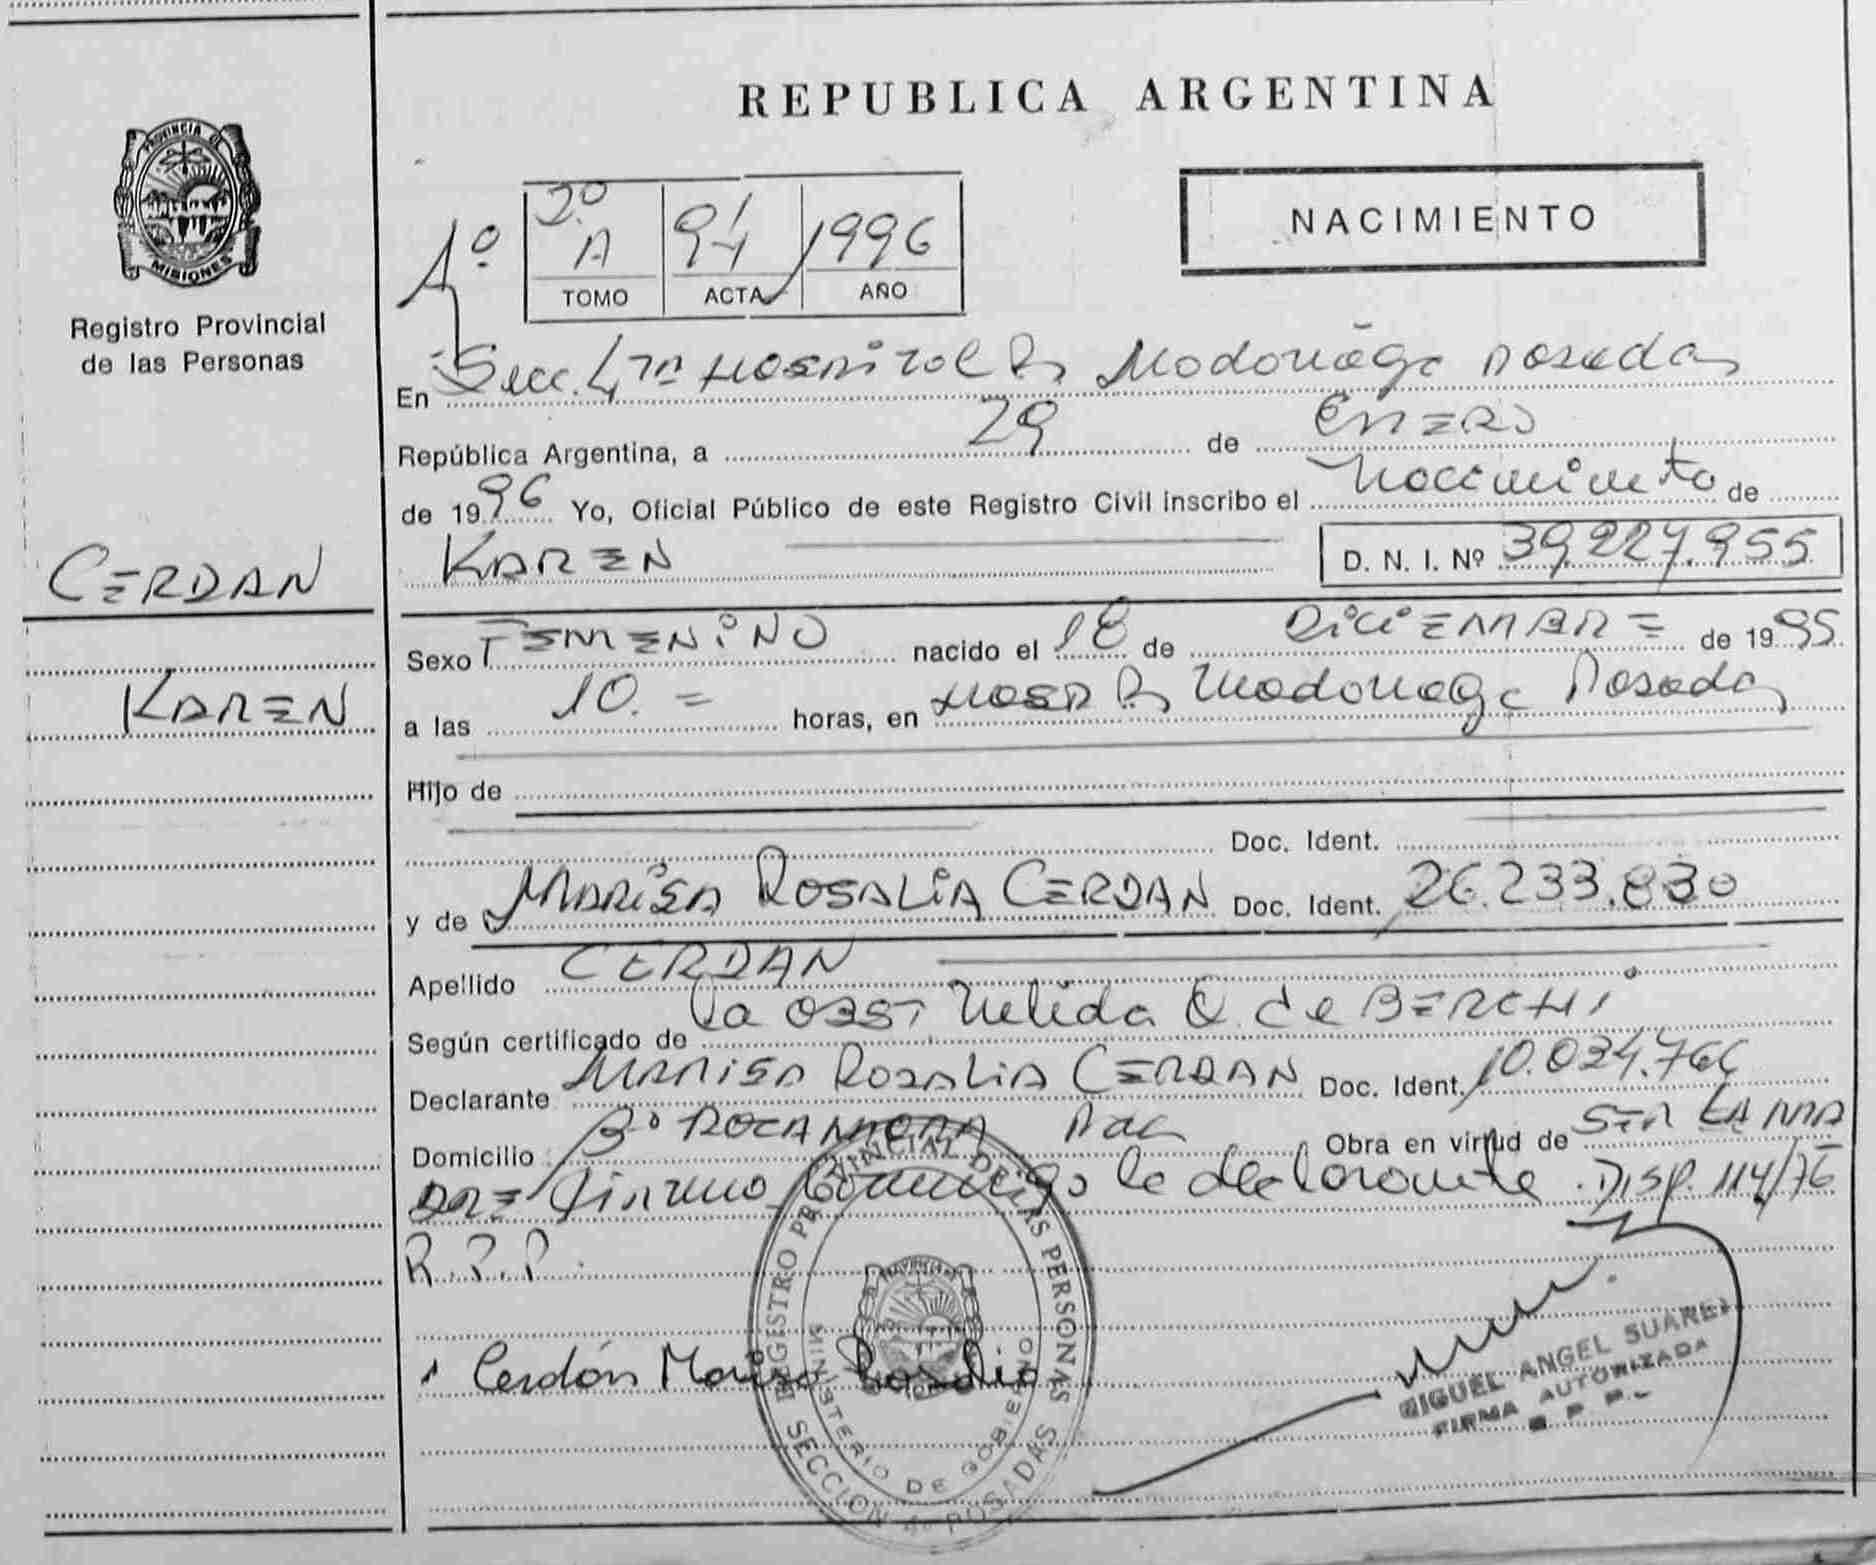 REPUBLICA ARGENTINA
PROVINCIA DE
MISIONES
Registro Provincial
de las Personas
1º
2º
A 94 1996
TOMO ACTA AÑO
NACIMIENTO
En Secc. 4ta Hospital Dr Madariaga Posadas
República Argentina, a 29 de Enero
de 1996 Yo, Oficial Público de este Registro Civil inscribo el Nacimiento de
KAREN D. N. I. Nº 39.227.955
CERDAN
KAREN
Sexo FEMENINO nacido el 18 de DICIEMBRE de 1995
a las 10.= horas, en Hosp Dr Madariaga Posadas
Hijo de
Doc. Ident.
y de MARISA ROSALIA CERDAN Doc. Ident. 26.233.830
Apellido CERDAN
Según certificado de la OBST Nelida de BERCHI
Declarante MARISA ROSALIA CERDAN Doc. Ident. 10.034.766
Domicilio Bº ROCAMORA Obra en virtud de SER LA MA
DRE Firmo Conmigo la declarante. DISP. 114/76
R.P.P.
Cerdán Marisa Rosalia
REGISTRO PROVINCIAL DE LAS PERSONAS
MINISTERIO DE GOBIERNO
SECCION 4a POSADAS
MIGUEL ANGEL SUAREZ
FIRMA AUTORIZADA
R P P